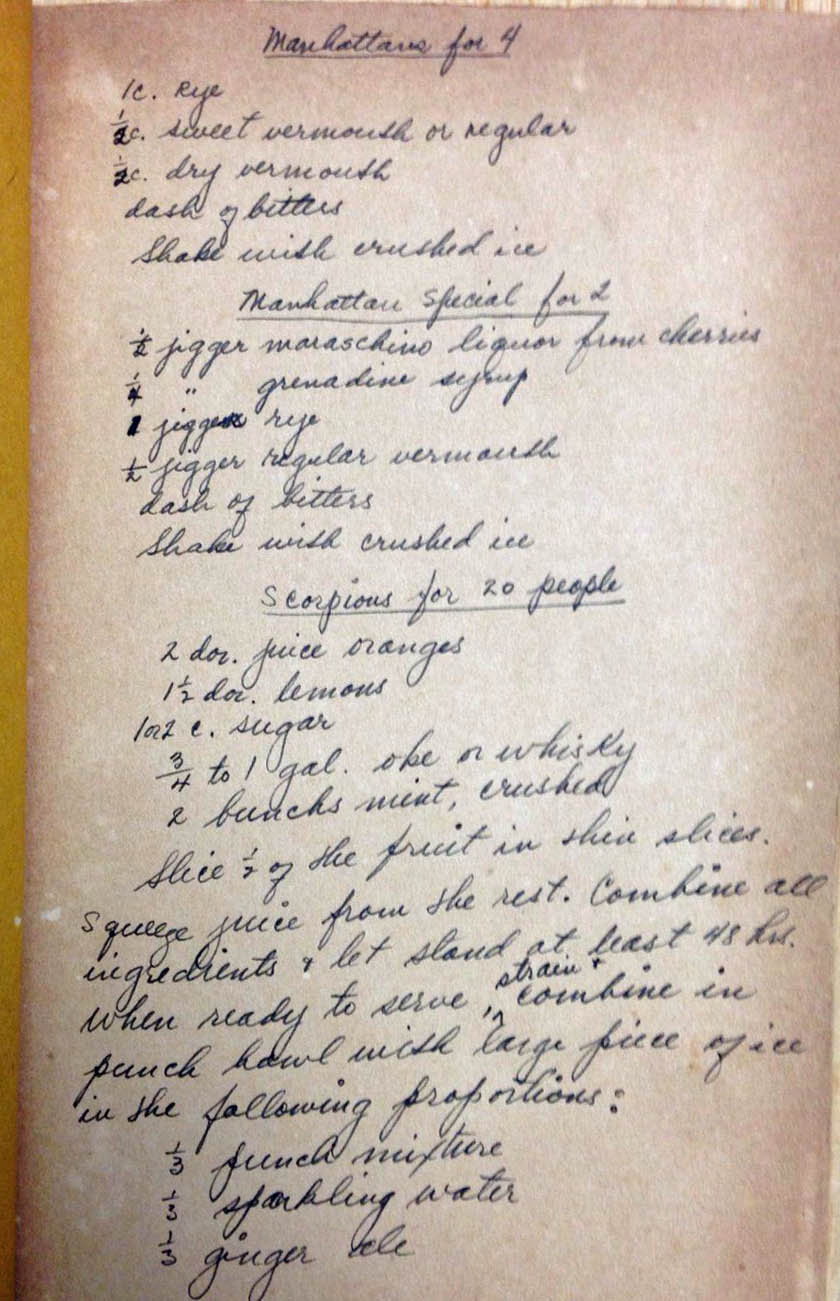 Manhattans for 4
1c. Rye
½c. sweet vermouth or regular
½c. dry vermouth
dash of bitters
Shake with crushed ice
Manhattan Special for 2
½ jigger maraschino liquor from cherries
¼ " grenadine syrup
1 jigger rye
½ jigger regular vermouth
dash of bitters
Shake with crushed ice
Scorpions for 20 people
2 doz. juice oranges
1½ doz. lemons
1 or 2 c. sugar
¾ to 1 gal. oke or whisky
2 bunchs mint, crushed
Slice ½ of the fruit in thin slices.
Squeeze juice from the rest. Combine all
ingredients & let stand at least 48 hrs.
When ready to serve, strain & combine in
punch bowl with large piece of ice
in the following proportions:
⅓ punch mixture
⅓ sparkling water
⅓ ginger ale